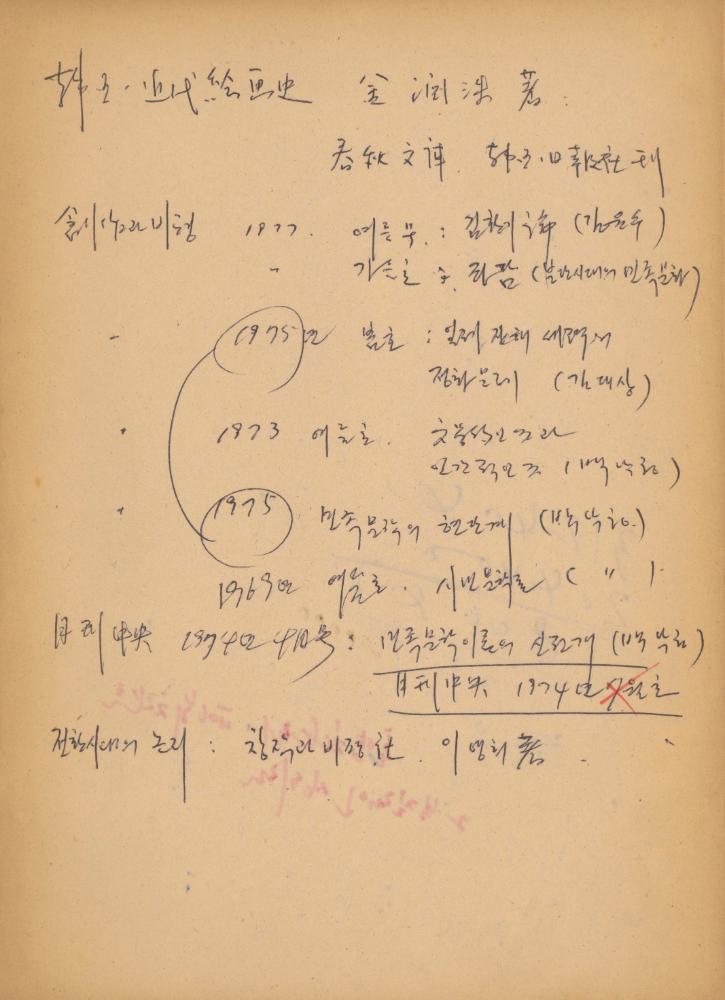 韓国·近代絵画史 金潤洙 著.
春秋文庫. 韓国日報社刊
創作과비평 1977. 여름号 : 김환기論 (김윤수)
〃 가을호 : 좌담 (분단시대의 민족문화)
〃 1975년 봄호 : 일제 잔재 세력의
정화문제 (김대상)
〃 1973 여름호. 文学的인 것과
인간적인 것 (백낙청)
〃 1975 민족문학의 현단계 (백낙청.)
1969년 여름호. 시민문학론 ( 〃 ).
月刊中央 1974년 4月号 : 민족문학이론의 신전개 (백낙청)
月刊中央 1974년 7월호
전환시대의 논리 : 창작과비평社. 이영희 著.